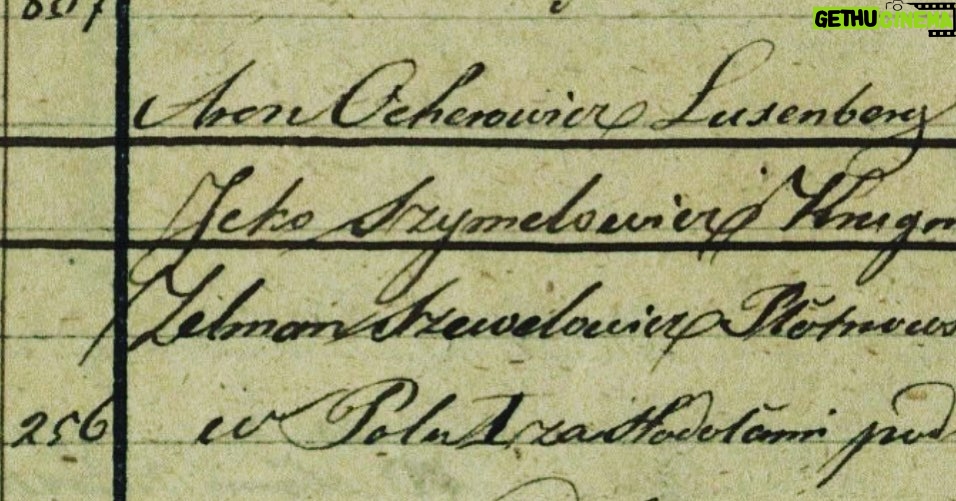 GETHU CINEMA
Aron Ocherowicz Lusenberg
Icko Szymelowicz
Zelman Szewelowicz
256 w Polu za Stodołami pod